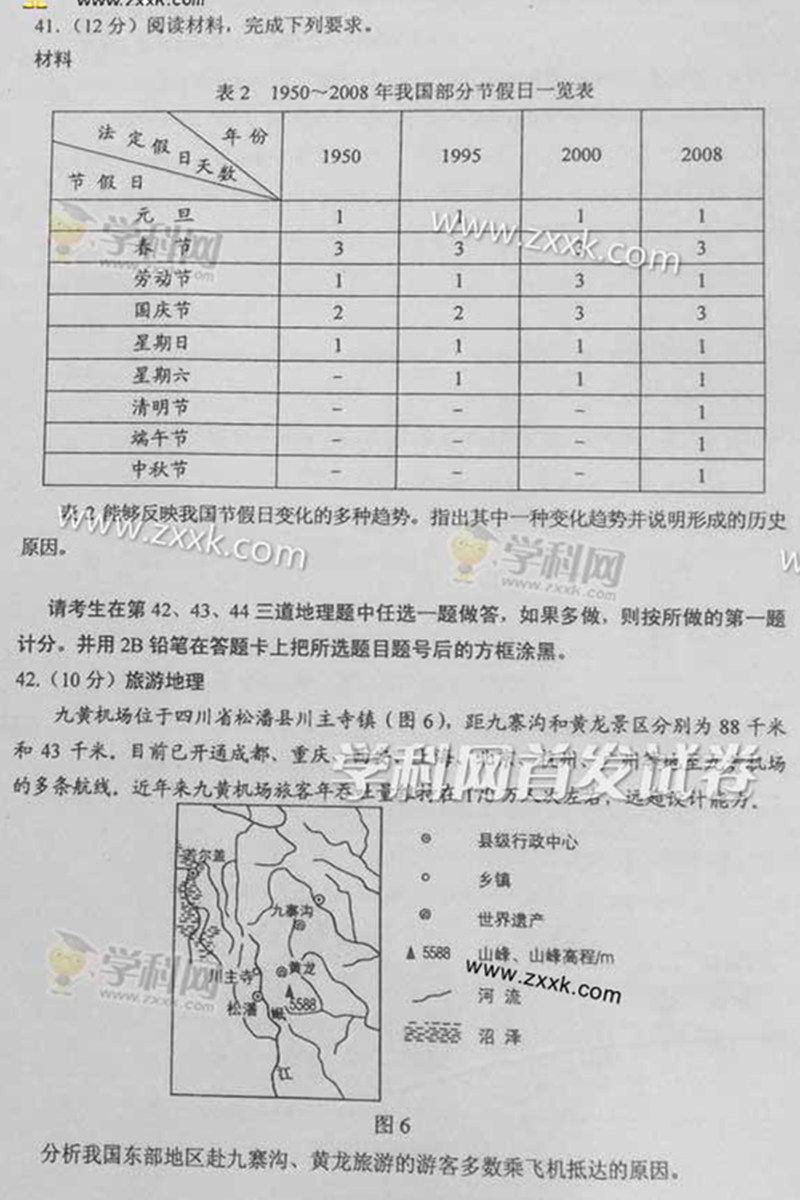 www.zxxk.com
41.（12分）阅读材料，完成下列要求。
材料
表2 1950～2008年我国部分节假日一览表
法定假日天数 年份 节假日 1950 1995 2000 2008
元旦 1 1 1 1
春节 3 3 3 3
劳动节 1 1 3 1
国庆节 2 2 3 3
星期日 1 1 1 1
星期六 － 1 1 1
清明节 － － － 1
端午节 － － － 1
中秋节 － － － 1
学科网
www.zxxk.com
www.zxxk.com
表2能够反映我国节假日变化的多种趋势。指出其中一种变化趋势并说明形成的历史
原因。
www.zxxk.com
学科网
www.zxxk.com
请考生在第42、43、44三道地理题中任选一题做答，如果多做，则按所做的第一题
计分。并用2B铅笔在答题卡上把所选题目题号后的方框涂黑。
42.（10分）旅游地理
九黄机场位于四川省松潘县川主寺镇（图6），距九寨沟和黄龙景区分别为88千米
和43千米。目前已开通成都、重庆、州等地至九黄机场
的多条航线。近年来九黄机场旅客年吞吐量维持在170万人次左右，远超设计能力。
学科网首发试卷
若尔盖
九寨沟
川主寺
黄龙
5588
松潘
岷
江
县级行政中心
乡镇
世界遗产
5588 山峰、山峰高程/m
河流
沼泽
学科网
www.zxxk.com
www.zxxk.com
图6
分析我国东部地区赴九寨沟、黄龙旅游的游客多数乘飞机抵达的原因。